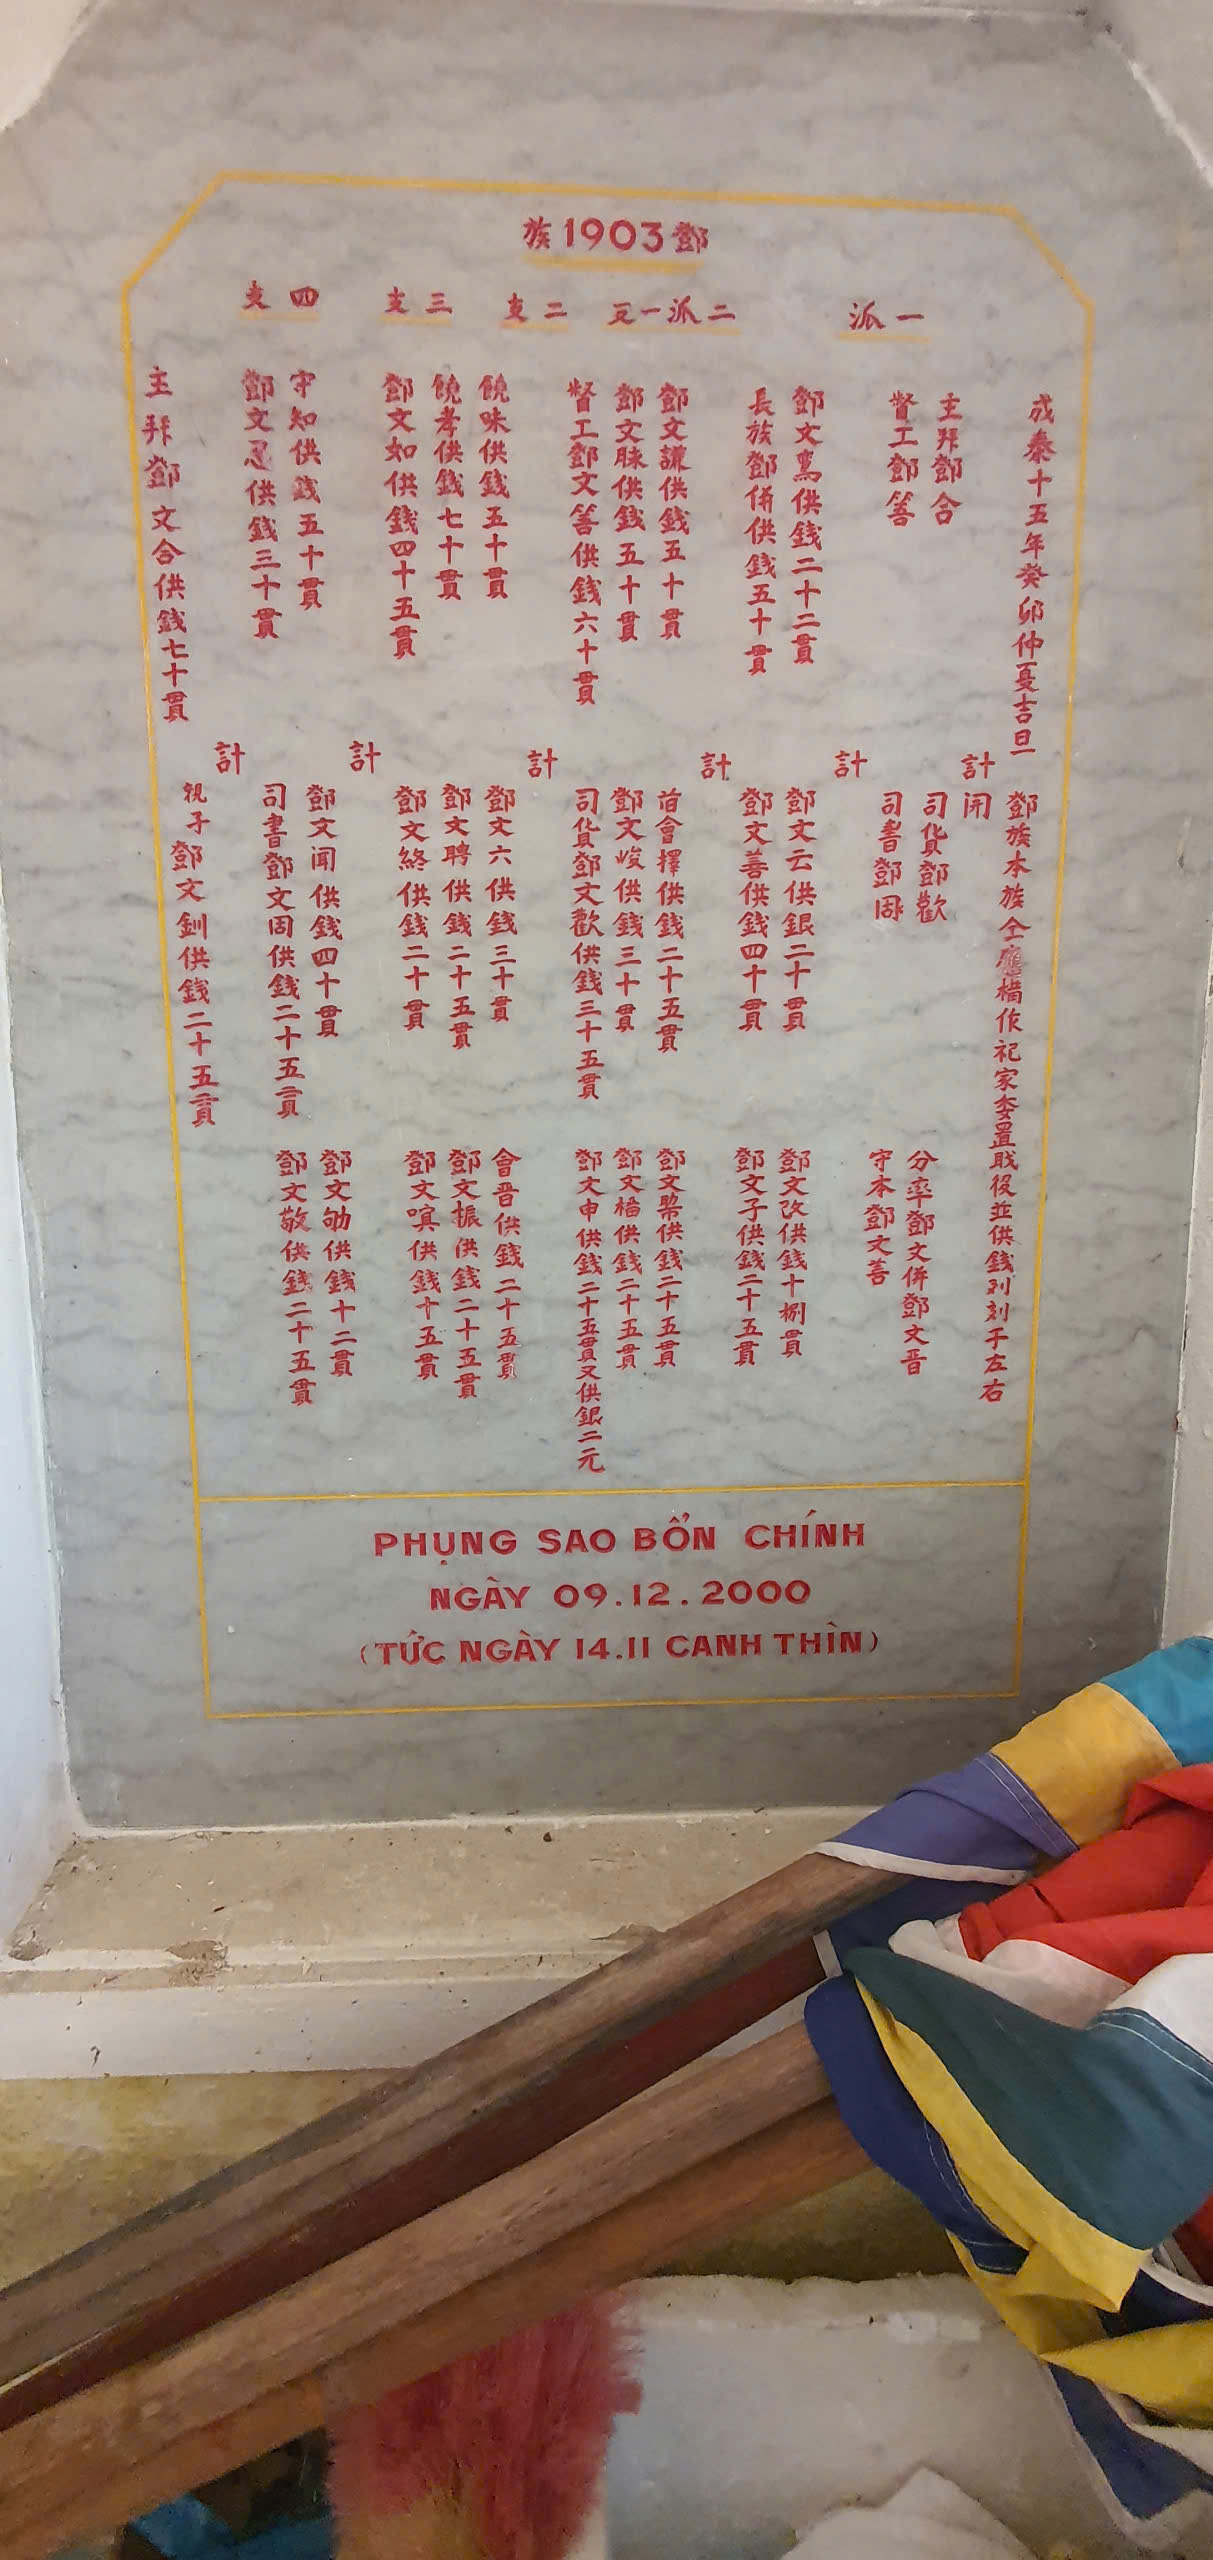 鄧 1903 族
一派
二派一支
二支
三支
四支
成泰十五年癸卯仲夏吉旦
鄧族本族仝應樯作祀家委置戝役並供錢列刻于左右
計開
主拜鄧合
司貨鄧歡
分率鄧文併鄧文晋
督工鄧善
司書鄧周
守本鄧文善
計
鄧文鸾供錢二十二貫
鄧文云供銀二十貫
鄧文改供錢十捌貫
長族鄧併供錢五十貫
鄧文善供錢四十貫
鄧文子供錢二十五貫
計
鄧文謙供錢五十貫
會擇供錢二十五貫
鄧文樂供錢二十五貫
鄧文脒供錢五十貫
鄧文峻供錢三十貫
鄧文樯供錢二十五貫
督工鄧文善供錢六十貫
司貨鄧文歡供錢三十五貫
鄧文申供錢二十五貫又供銀二元
計
饒味供錢五十貫
鄧文六供錢三十貫
會晋供錢二十五貫
饒孝供錢七十貫
鄧文聘供錢二十五貫
鄧文振供錢二十五貫
鄧文如供錢四十五貫
鄧文終供錢二十貫
鄧文嗔供錢十五貫
計
守知供錢五十貫
鄧文闻供錢四十貫
鄧文劬供錢十二貫
鄧文忍供錢三十貫
司書鄧文固供錢二十五貫
鄧文敬供錢二十五貫
計
主拜鄧文合供錢七十貫
視子鄧文釧供錢二十五貫
PHỤNG SAO BỔN CHÍNH
NGÀY 09.12.2000
(TỨC NGÀY 14.11 CANH THÌN)